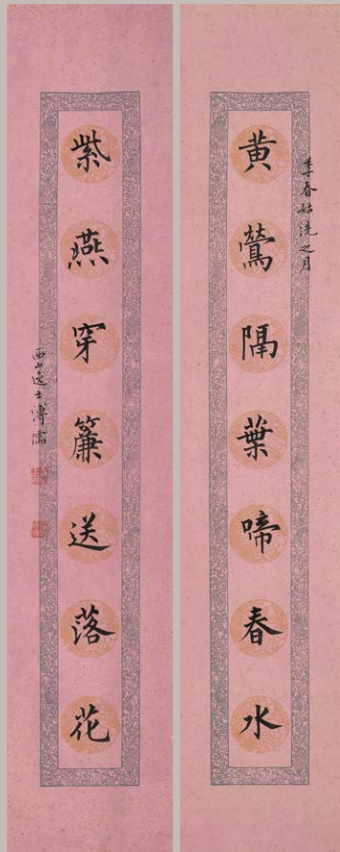 季春姑洗之月
黄鶯隔葉啼春水
紫燕穿簾送落花
西山逸士溥儒